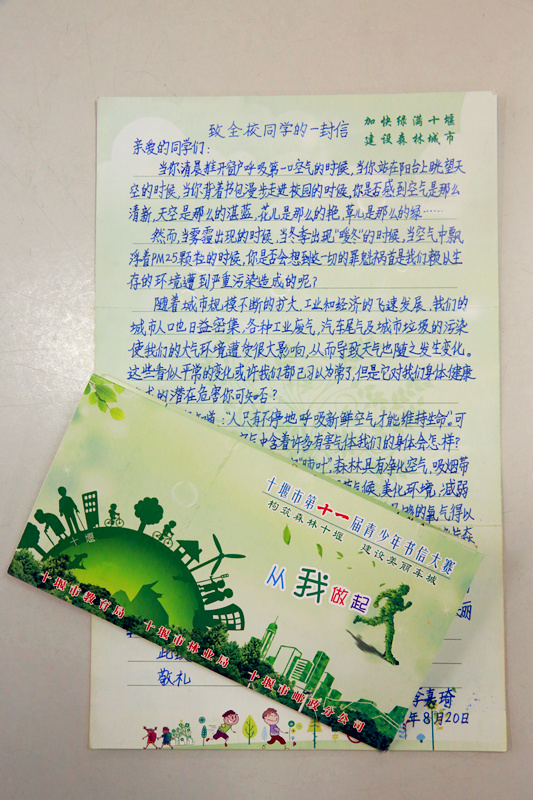 加快绿满十堰
建设森林城市
致全校同学的一封信
亲爱的同学们:
当你清晨推开窗户呼吸第一口空气的时候,当你站在阳台上眺望天
空的时候,当你背着书包漫步走进校园的时候,你是否感到空气是那么
清新,天空是那么的湛蓝,花儿是那么的艳,草儿是那么的绿……
然而,当雾霾出现的时候,当冬季出现"暖冬"的时候,当空气中飘
浮着PM2.5颗粒的时候,你是否会想到这一切的罪魁祸首是我们赖以生
存的环境遭到严重污染造成的呢?
随着城市规模不断的扩大,工业和经济的飞速发展,我们的
城市人口也日益密集,各种工业废气,汽车尾气及城市垃圾的污染
使我们的大气环境遭受很大影响,从而导致天气也随之发生变化。
这些看似平常的变化或许我们都已习以为常了,但是它对我们身体健康
的潜在危害你可知否?
:"人只有不停地呼吸新鲜空气才能维持生命"。可
中含着许多有害气体我们的身体会怎样?
"肺叶",森林具有净化空气,吸烟带
气候,美化环境,减弱
的氧气得以
丽
此
敬礼
李嘉琦
年8月20日
十堰市第十一届青少年书信大赛
构筑森林十堰 建设美丽车城
从我做起
十堰
十堰市教育局 十堰市林业局 十堰市邮政分公司